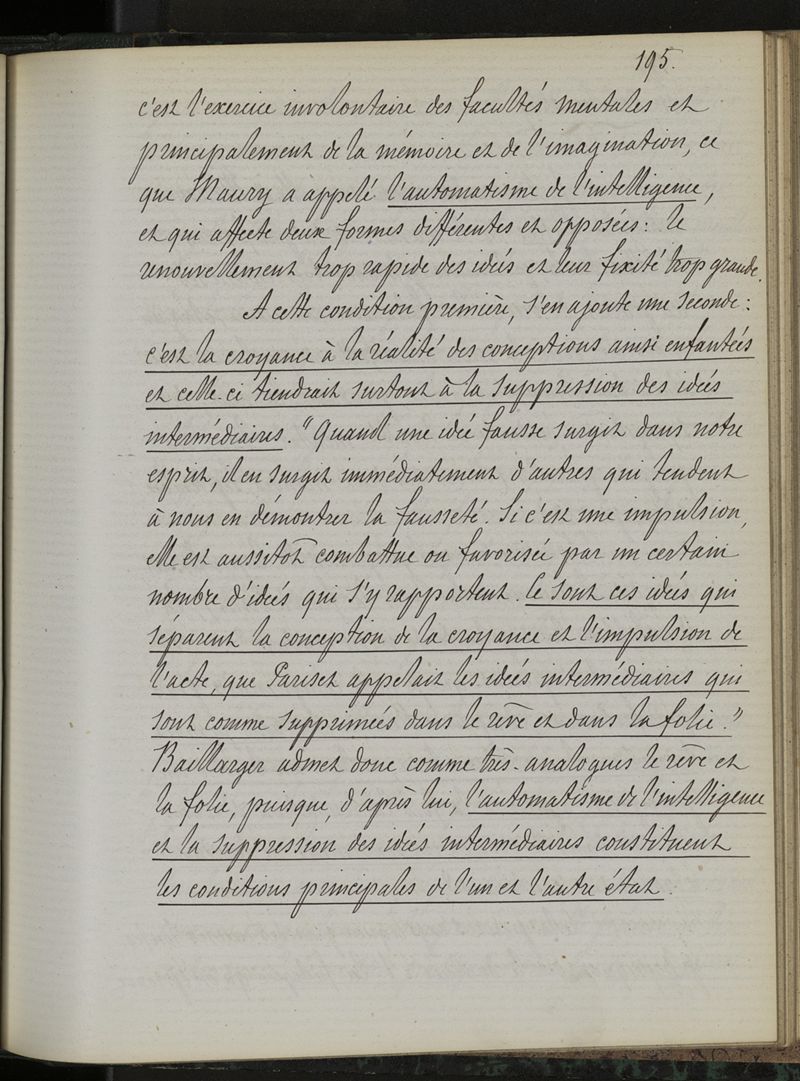 195.
c'est l'exercice involontaire des facultés mentales et
principalement de la mémoire et de l'imagination, ce
que Maury a appelé l'automatisme de l'intelligence,
et qui affecte deux formes différentes et opposées : le
renouvellement trop rapide des idées et leur fixité trop grande.
A cette condition première, s'en ajoute une seconde :
c'est la croyance à la réalité des conceptions ainsi enfantées
et celle-ci tiendrait surtout à la suppression des idées
intermédiaires. "Quand une idée fausse surgit dans notre
esprit, il en surgit immédiatement d'autres qui tendent
à nous en démontrer la fausseté. Si c'est une impulsion,
elle est aussitôt combattue ou favorisée par un certain
nombre d'idées qui s'y rapportent. Ce sont ces idées qui
séparent la conception de la croyance et l'impulsion de
l'acte, que Pariset appelait les idées intermédiaires qui
sont comme supprimées dans le rêve et dans la folie."
Baillarger admet donc comme très-analogues le rêve et
la folie, puisque, d'après lui, l'automatisme de l'intelligence
et la suppression des idées intermédiaires constituent
les conditions principales de l'un et l'autre état.